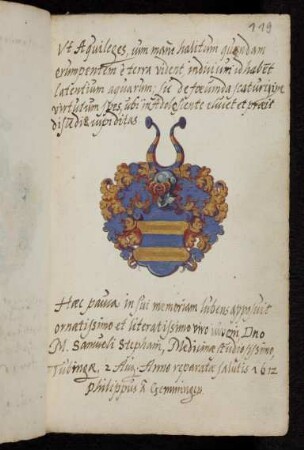 119
Vt Aquileges, cum mane halitum quendam
erumpentem è terra vident, indicium id habēt
latentium aquarum: sic de fœcunda scaturigine
virtutum spes, ubi in Adolescente eluxet et præit
discēdi cupiditas
Hæc pauca in sui memoriam lubens apposuit
ornatissimo et literatissimo viro Dno
M. Samueli Stephani, Medicinæ studiosissimo,
Tubingæ, 2 Aug. Anno reparatæ salutis 1612
Philippus à Gemmingen.